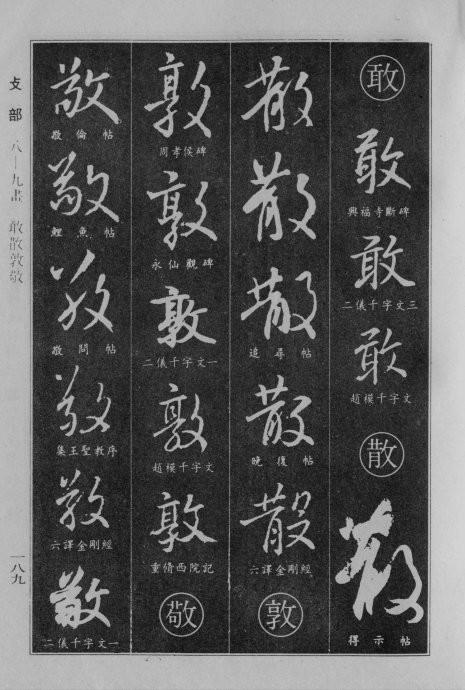 敢
敢
興福寺斷碑
敢
二儀千字文三
敢
趙模千字文
散
散
得示帖
散
散
散
追尋帖
散
晚復帖
散
六譯金剛經
敦
敦
周孝侯碑
敦
永仙觀碑
敦
二儀千字文一
敦
趙模千字文
敦
重脩西院記
敬
敬
敬倫帖
敬
鯉魚帖
敬
敬問帖
敬
集王聖教序
敬
六譯金剛經
敬
二儀千字文一
攴部 八—九畫 敢散敦敬
一八九